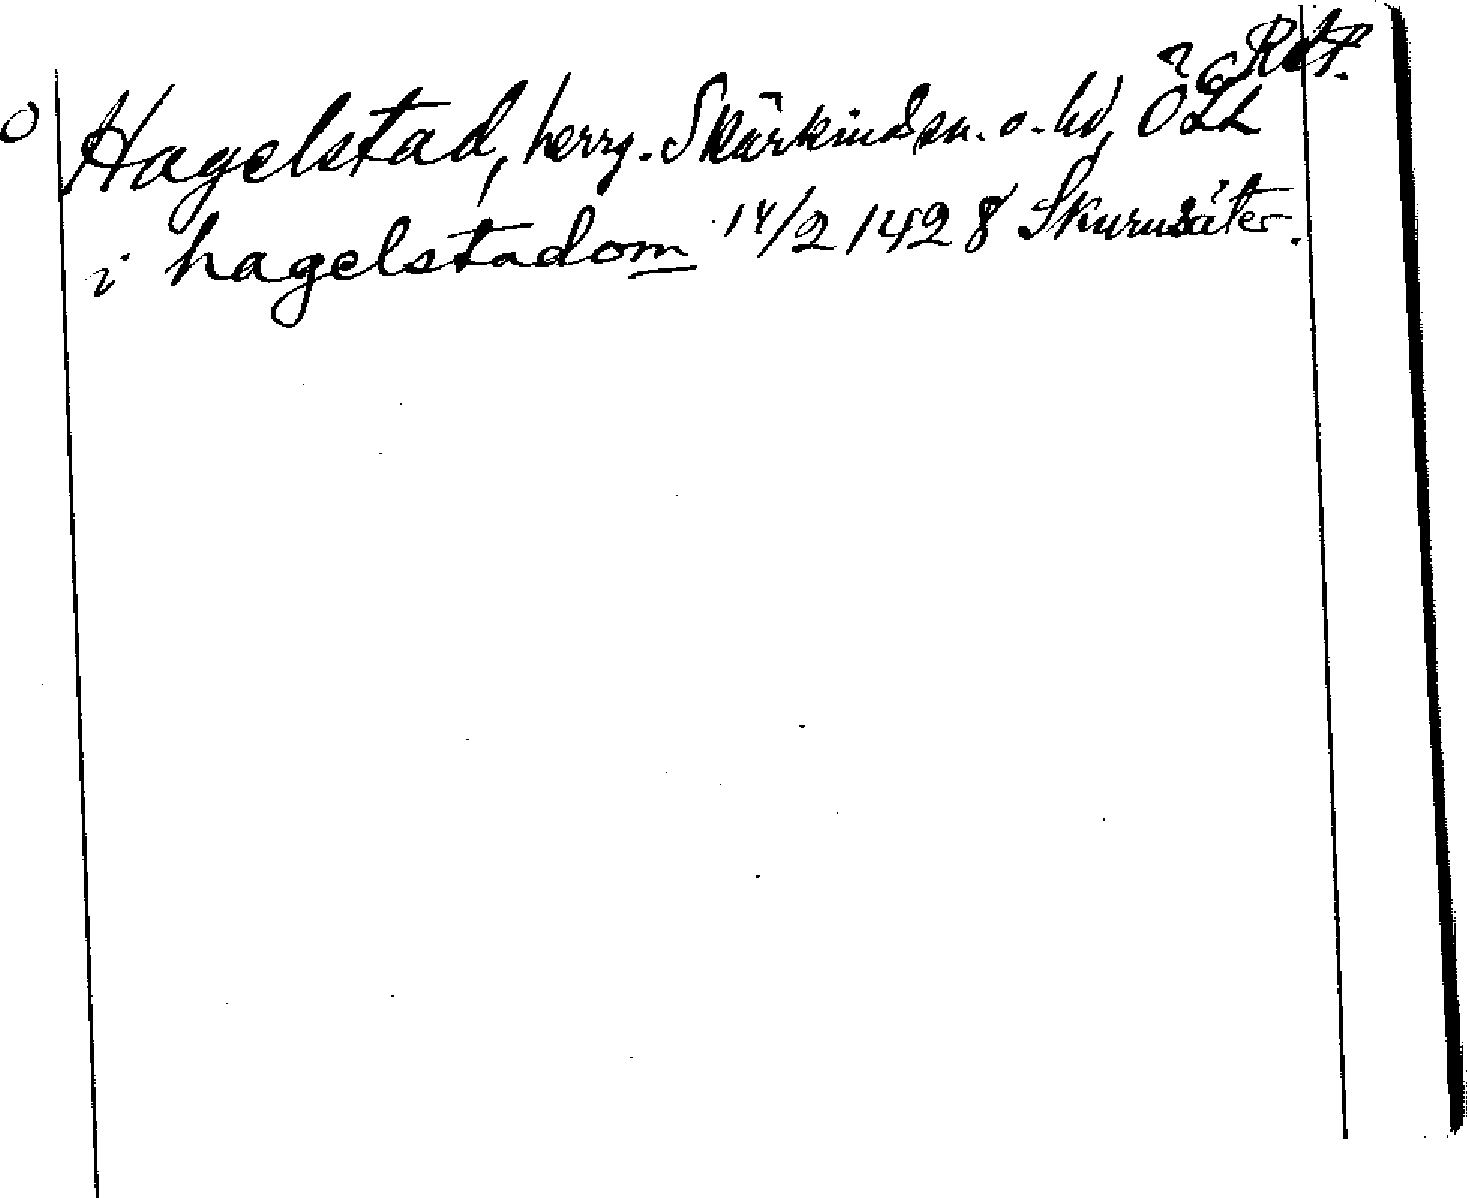 Rdt.
Hagelstad, herrg. Skärkinds sn. o. hd, ÖGL
i hagelstadom 14/2 1428 Skurusäter.